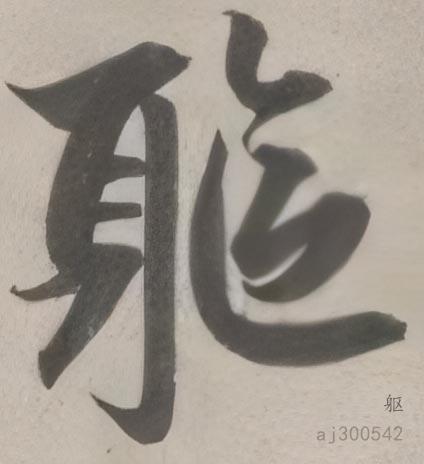 軀
躯
aj300542